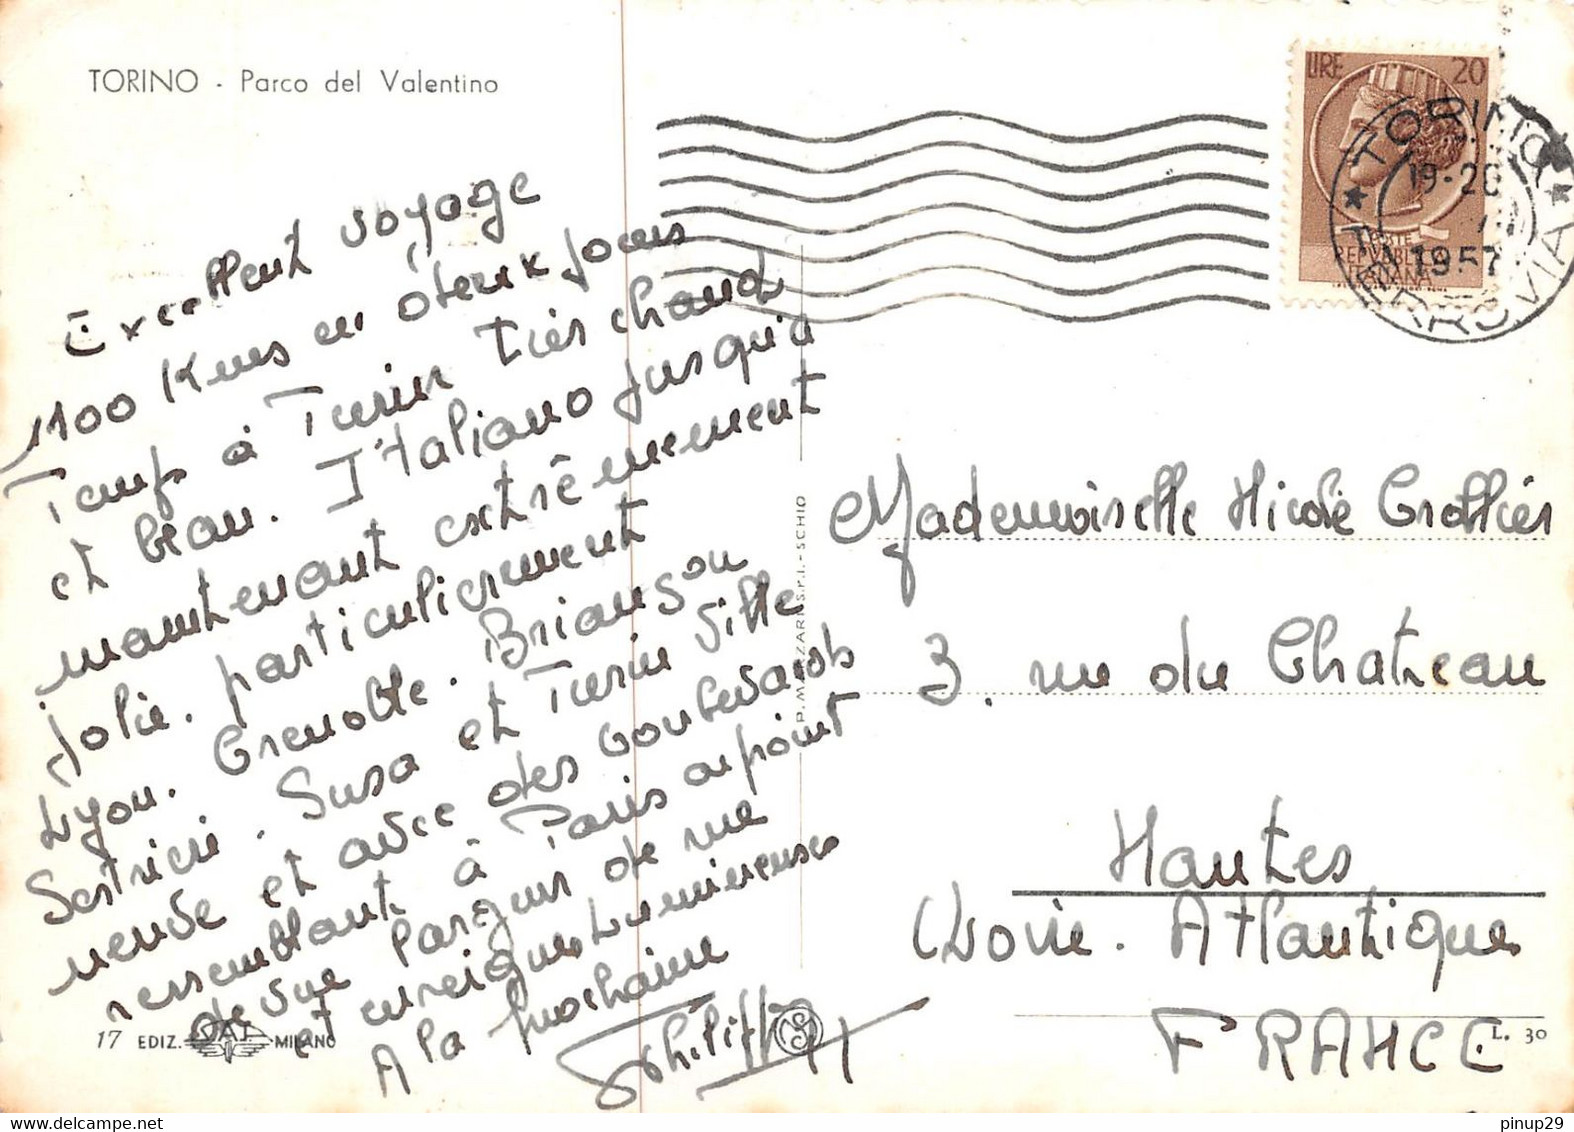 TORINO - Parco del Valentino
Excellent voyage
1100 Kms en deux jours
Temps à Turin très chaud
et beau. Italiano jusqu'à
maintenant extrêmement
jolie. particulièrement
Lyon. Grenoble. Briançon
Sestriere. Susa et Turin ville
neuve et avec des boulevards
ressemblant à Paris au point
de vue largeur de rue
et enseignes lumineuses
A la prochaine
Philippe
17 EDIZ. S.A.F. MILANO
P. MARZARI S.r.l. - SCHIO
LIRE 20
POSTE
REPVBBLICA
ITALIANA
TORINO
19-20
1957
FERROVIA
Mademoiselle Nicole Crollier
3. rue du Chateau
Nantes
Loire. Atlantique
FRANCE
L. 30
pinup29